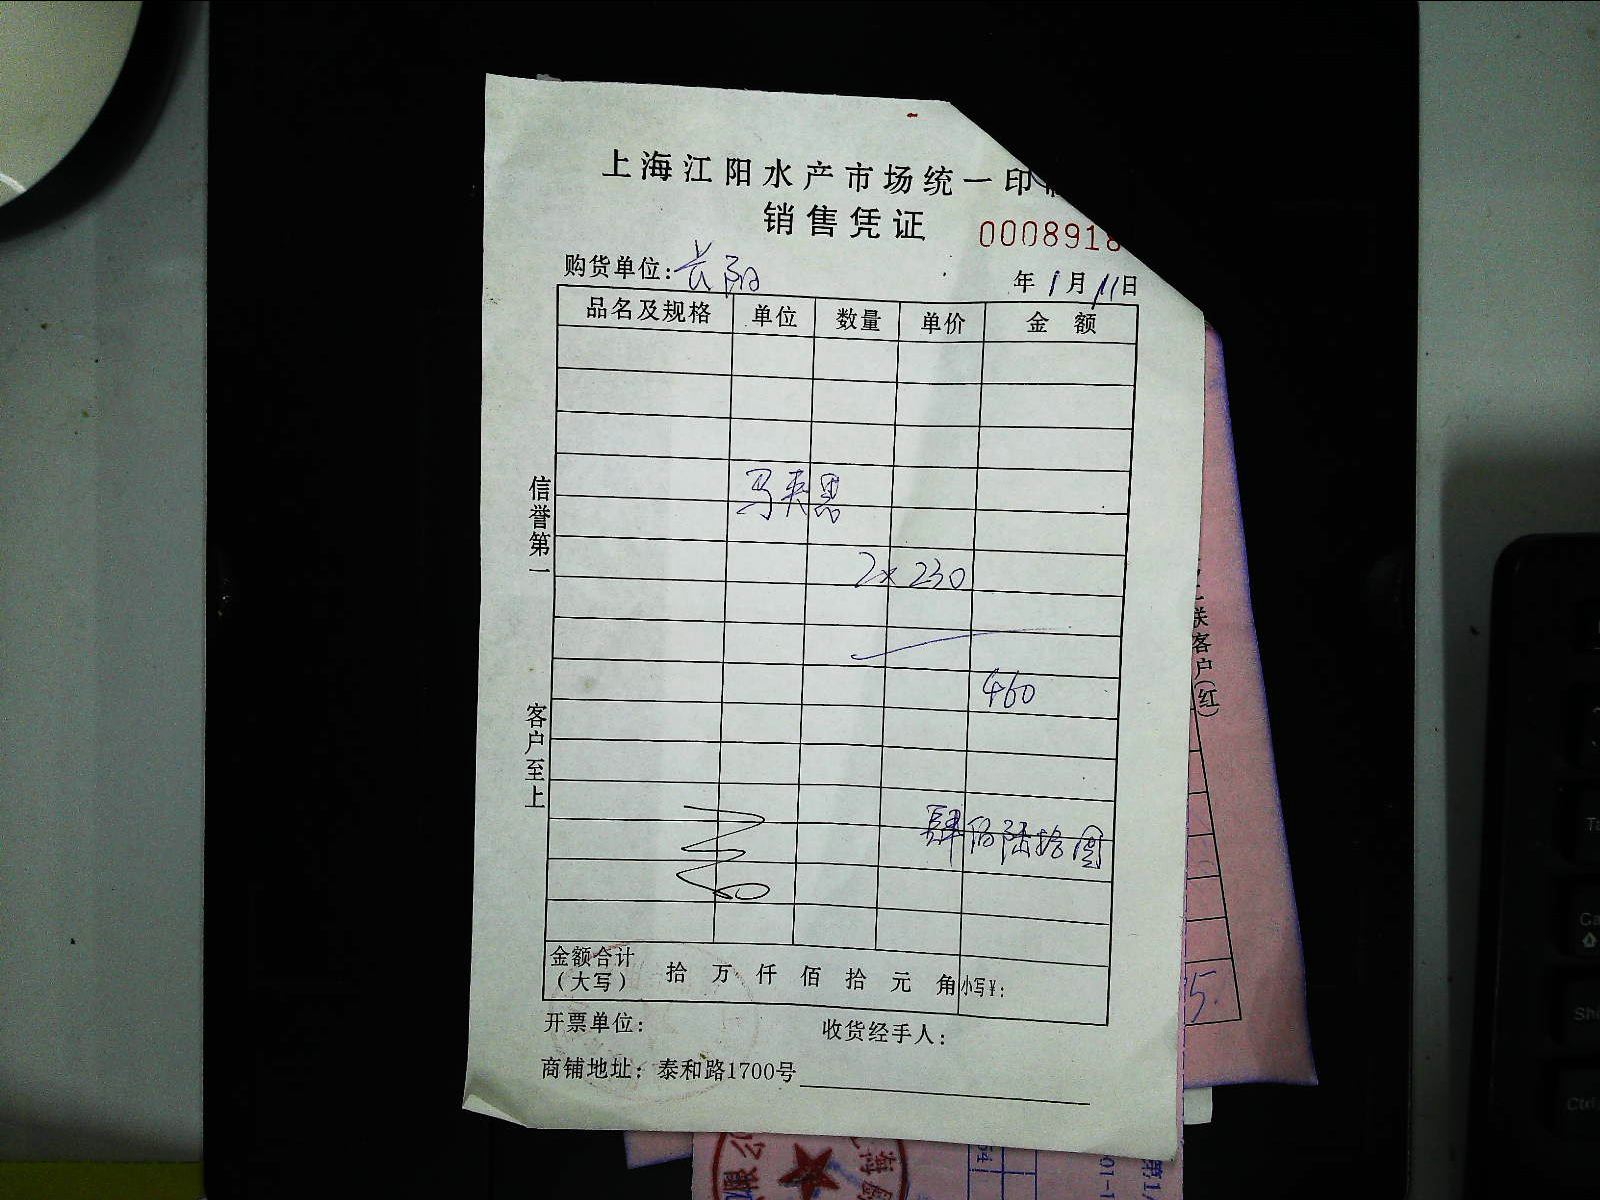 上海江阳水产市场统一印
销售凭证 0008918
购货单位:长阳 年1月11日
品名及规格 单位 数量 单价 金额
马夹
2×230
460
肆佰陆拾圆
金额合计(大写) 拾 万 仟 佰 拾 元 角 小写¥:
开票单位: 收货经手人:
商铺地址: 泰和路1700号
信誉第一
客户至上
联客户(红)